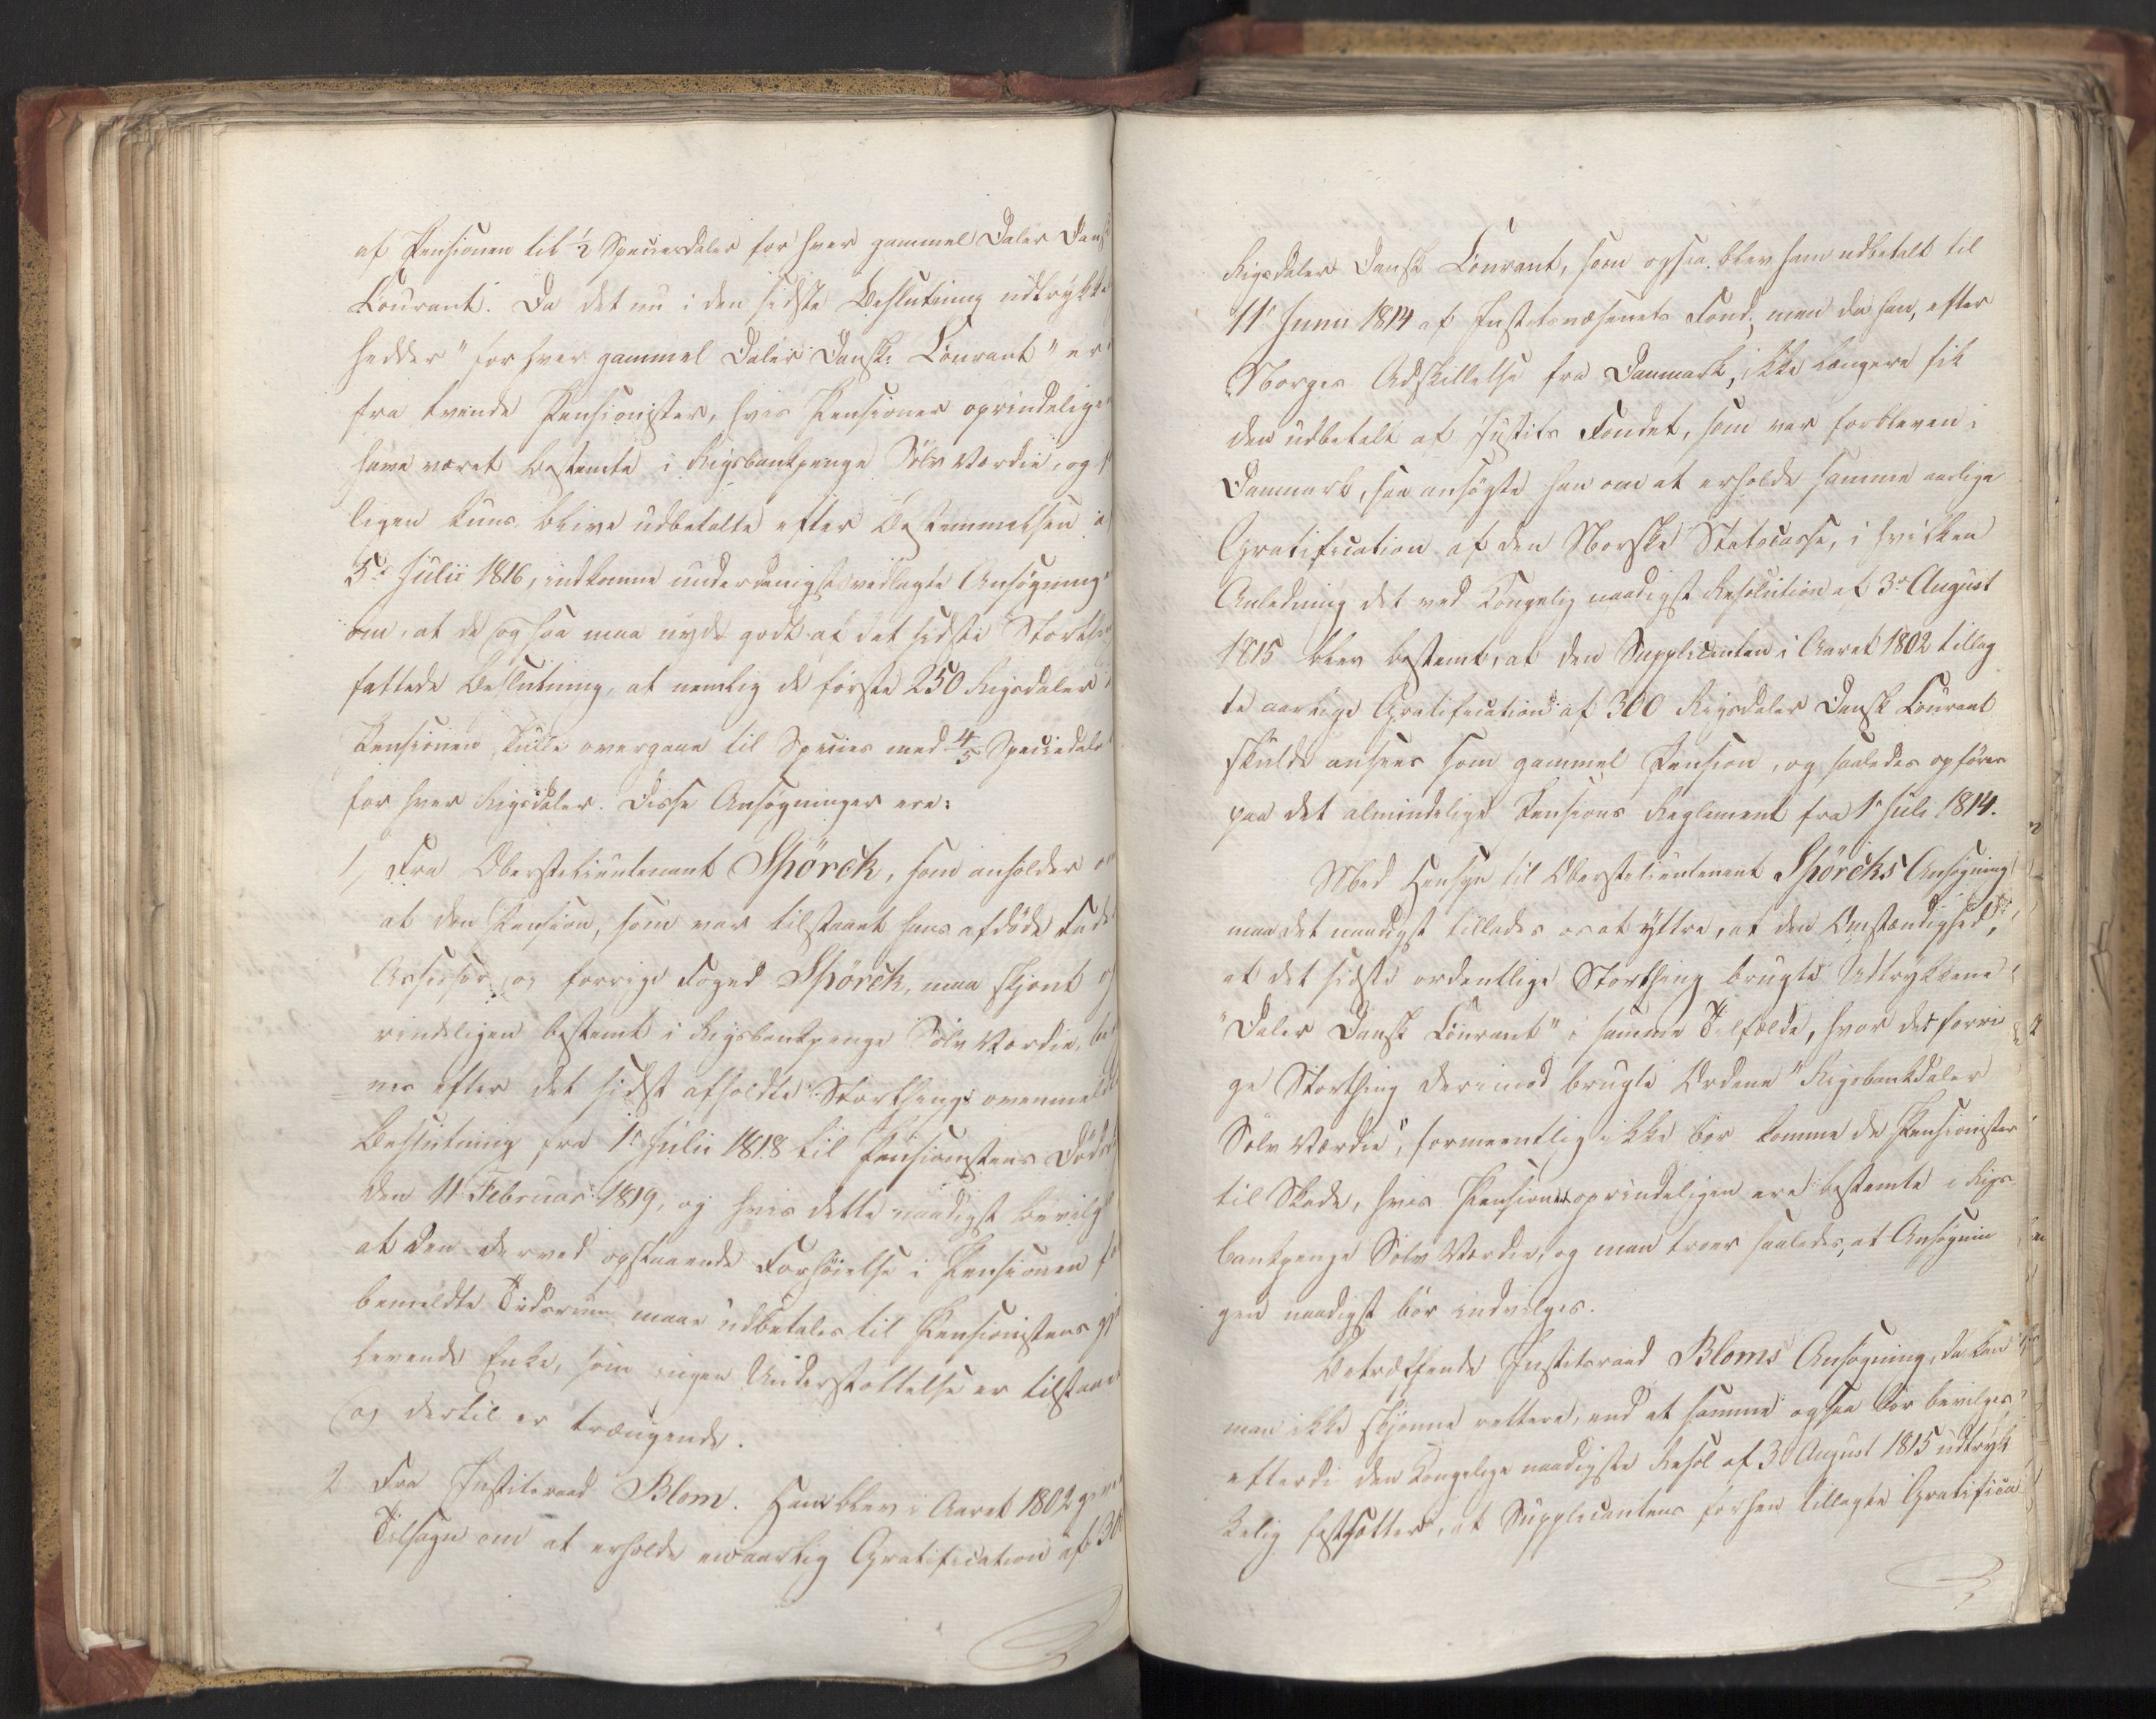 af Pensionen til ½ Speciesdaler for hver gammel Daler Dansk
Courant. Da det nu i den sidste Beslutning udtrykke
hedder "for hver gammel Daler Dansk Courant" er
fra tvende Pensionister, hvis Pensioner oprindelige
have været bestemte i Rigsbankpenge Sölv Værdie, og
ligen kuns blive udbetalte efter Bestemmelsen
5te Julii 1816, indkomne underdanigst vedlagte Ansögning
om, at de ogsaa maa nyde godt af det sidste Storthing
fattede Beslutning, at nemlig de förste 250 Rigsdaler
Pensionen skulle overgaae til Species med 4/5 Speciedaler
for hver Rigsdaler. Disse Ansögninger ere:
1, Fra Oberstelieutenant Spörck, som anholder om
at den Pension, som var tilstaaet hans afdöde Fader
Assessor og forrige Foged Spörck, maa skjönt op
rindeligen bestemt i Rigsbankpenge Sölv Værdie, be
nes efter det sidst afholdte Storthings ovenmeldte
Beslutning fra 1ste Julii 1818 til Pensionistens Död
den 11 Februar 1819, og hvis dette naadigst bevilges
at den derved opstaaende Forhöielse i Pensionen for
bemeldte Tidsrum maae udbetales til Pensionistens gjen
levende Enke, som ingen Understöttelse er tilstaaet
og dertil er trængende.
2 Fra Justitsraad Blom. Han blev i Aaret 1802 givet
Tilsagn om at erholde en aarlig Gratification af 300
Rigsdaler Dansk Courant, som ogsaa blev ham udbetalt til
11te Junii 1814 af Justitsvæsenets Fond; men da han, efter
Norges Adskillelse fra Danmark, ikke længere fik
den udbetalt af Justits Fondet, som var forbleven i
Danmark, saa ansögte han om at erholde samme aarlige
Gratification af den Norske Statscasse, i hvilken
Anledning det ved Kongelig naadigst Resolution af 3die August
1815 blev bestemt, at den Supplicanten i Aaret 1802 tillag
te aarlige Gratification af 300 Rigsdaler Dansk Courant
skulde ansees som gammel Pension, og saaledes opföres
paa det almindelige Pensions Reglement fra 1ste Juli 1814.
Med Hensyn til Oberstelieutenant Spörcks Ansögning
maa det naadigst tillades os at yttre, at den Omstændighed,
at det sidste ordentlige Storthing brugte Udtrykkene
"Daler Dansk Courant" i samme Tilfælde, hvor det forri
ge Storthing derimod brugte Ordene "Rigsbankdaler
Sölv Værdie", formeentlig ikke bör komme de Pensionister
til Skade, hvis Pensioner oprindeligen ere bestemte i Rigs
bankpenge Sölv Værdie, og man troer saaledes, at Ansögnin
gen naadigst bör indvilges.
Betræffende Justitsraad Bloms Ansögning, da kan
man ikke skjönne rettere, end at samme ogsaa bör bevilges,
efterdi den Kongelige naadigste Resol af 3 August 1815 udtryk
kelig fastsætter, at Supplicantens forhen tillagte Gratifica